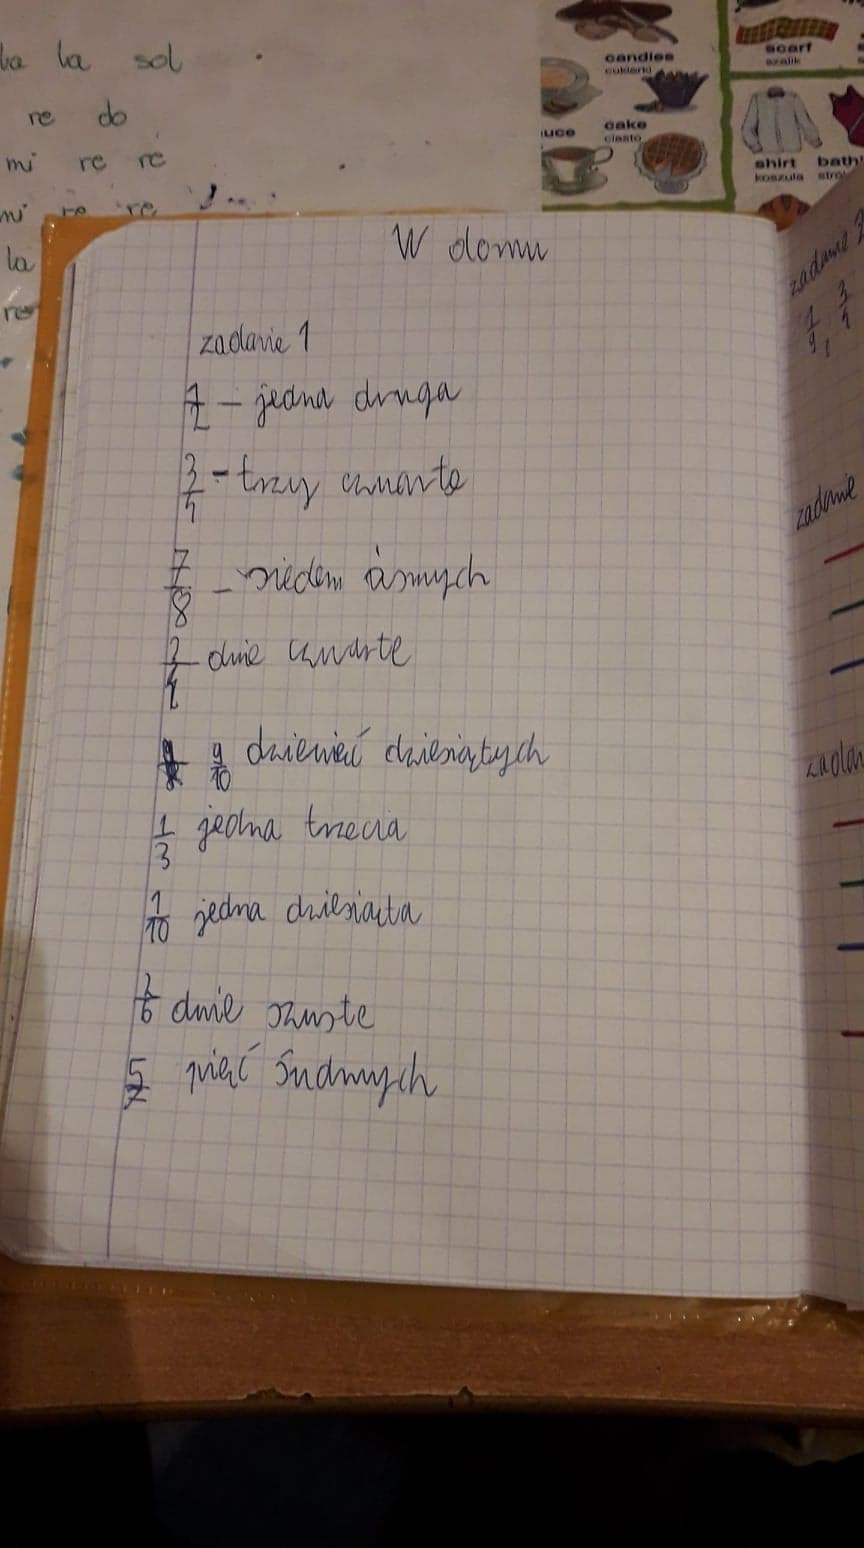 la la sol
re do
mi re re
mi re re
la
re
candies
cukierki
scarf
szalik
cake
ciasto
shirt
koszula
W domu
zadanie 1
1/2 - jedna druga
3/4 - trzy czwarte
7/8 - siedem ósmych
2/4 dwie czwarte
9/10 dziewięć dziesiątych
1/3 jedna trzecia
1/10 jedna dziesiąta
2/6 dwie szuste
5/7 pięć śudmych
zadanie 2
zadanie